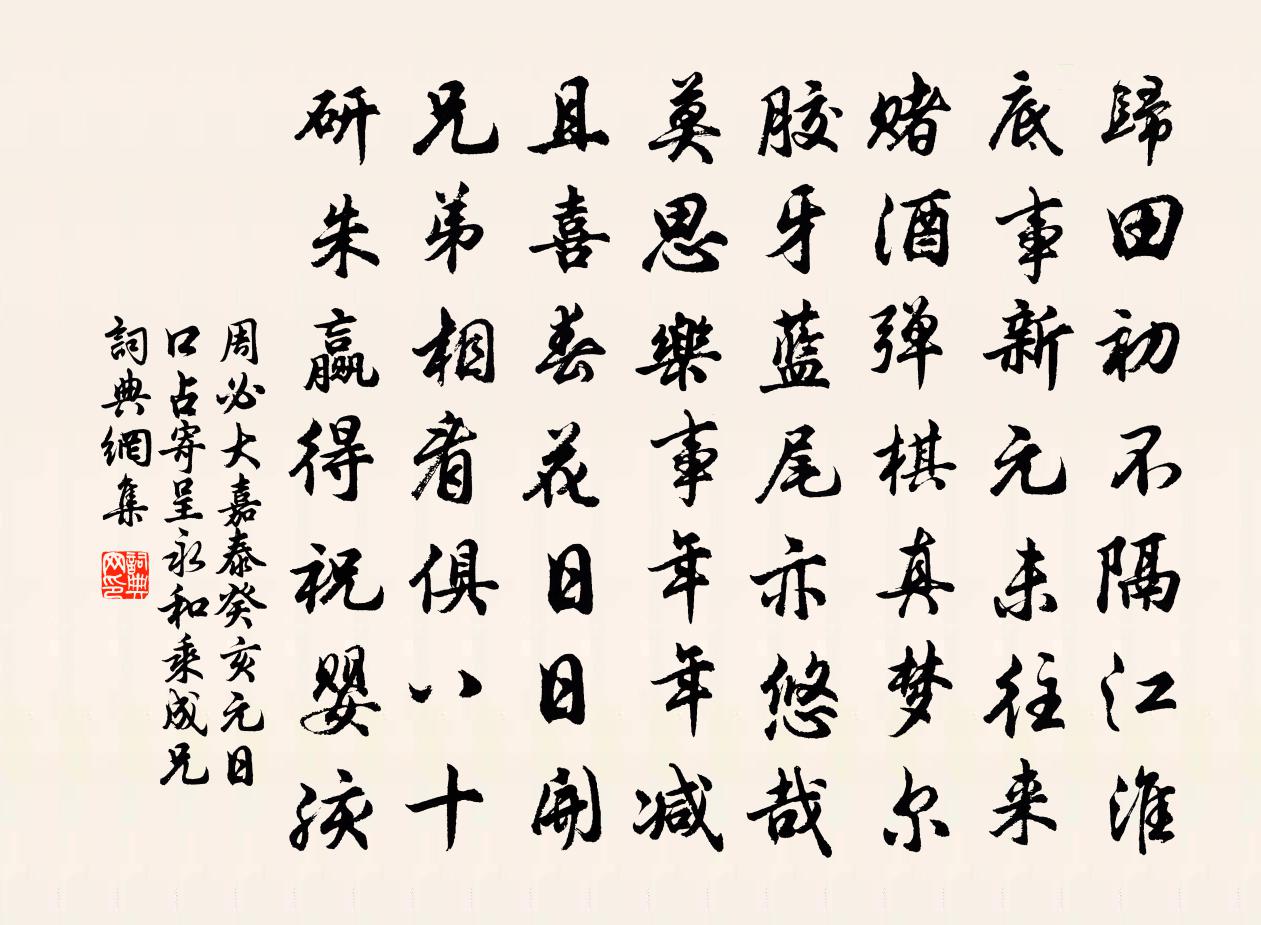 歸田初不隔江淮
底事新元未往来
赌酒弹棋真梦尔
胶牙藍尾亦悠哉
莫思樂事年年减
且喜春花日日開
兄弟相看俱八十
研朱贏得祝嬰孩
周必大嘉泰癸亥元日
口占寄呈永和乘成兄
詞典網集
詞典網印